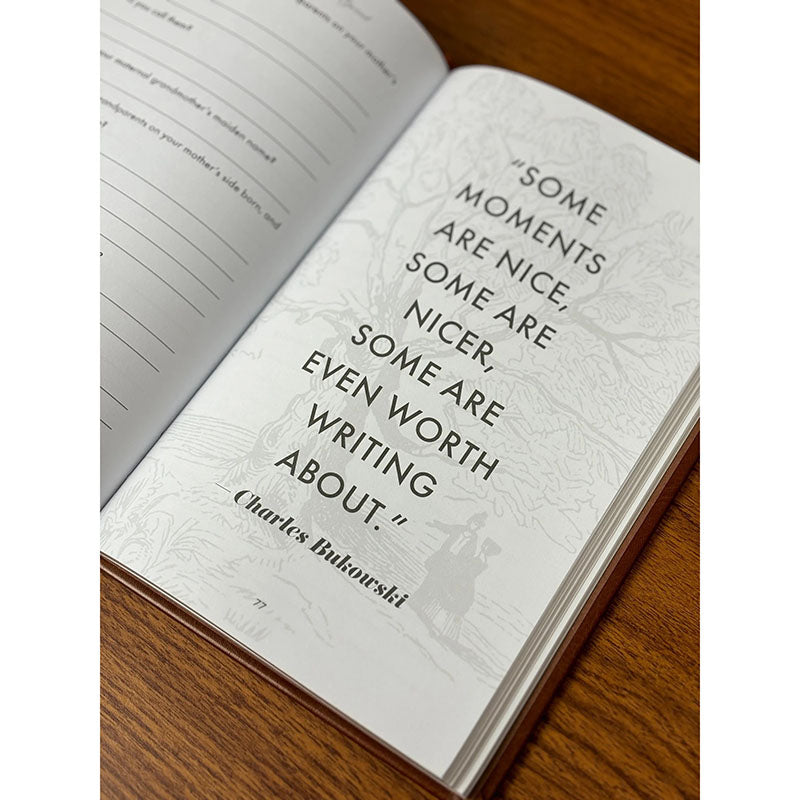 parents on your mother's
you call them?
your maternal grandmother's maiden name?
grandparents on your mother's side born, and
?
?
"SOME
MOMENTS
ARE NICE,
SOME ARE
NICER,
SOME ARE
EVEN WORTH
WRITING
ABOUT."
—Charles Bukowski
77